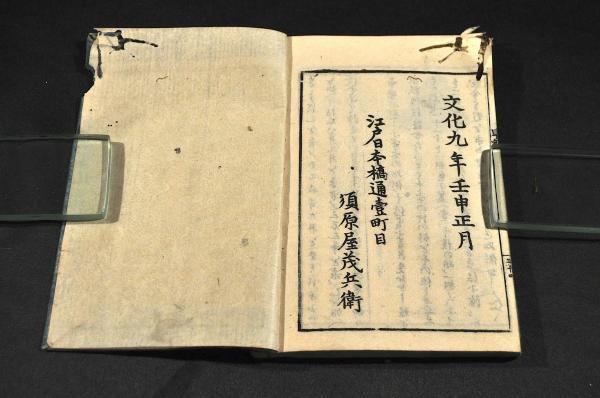 文化九年壬申正月
江戸日本橋通壹町目
須原屋茂兵衛